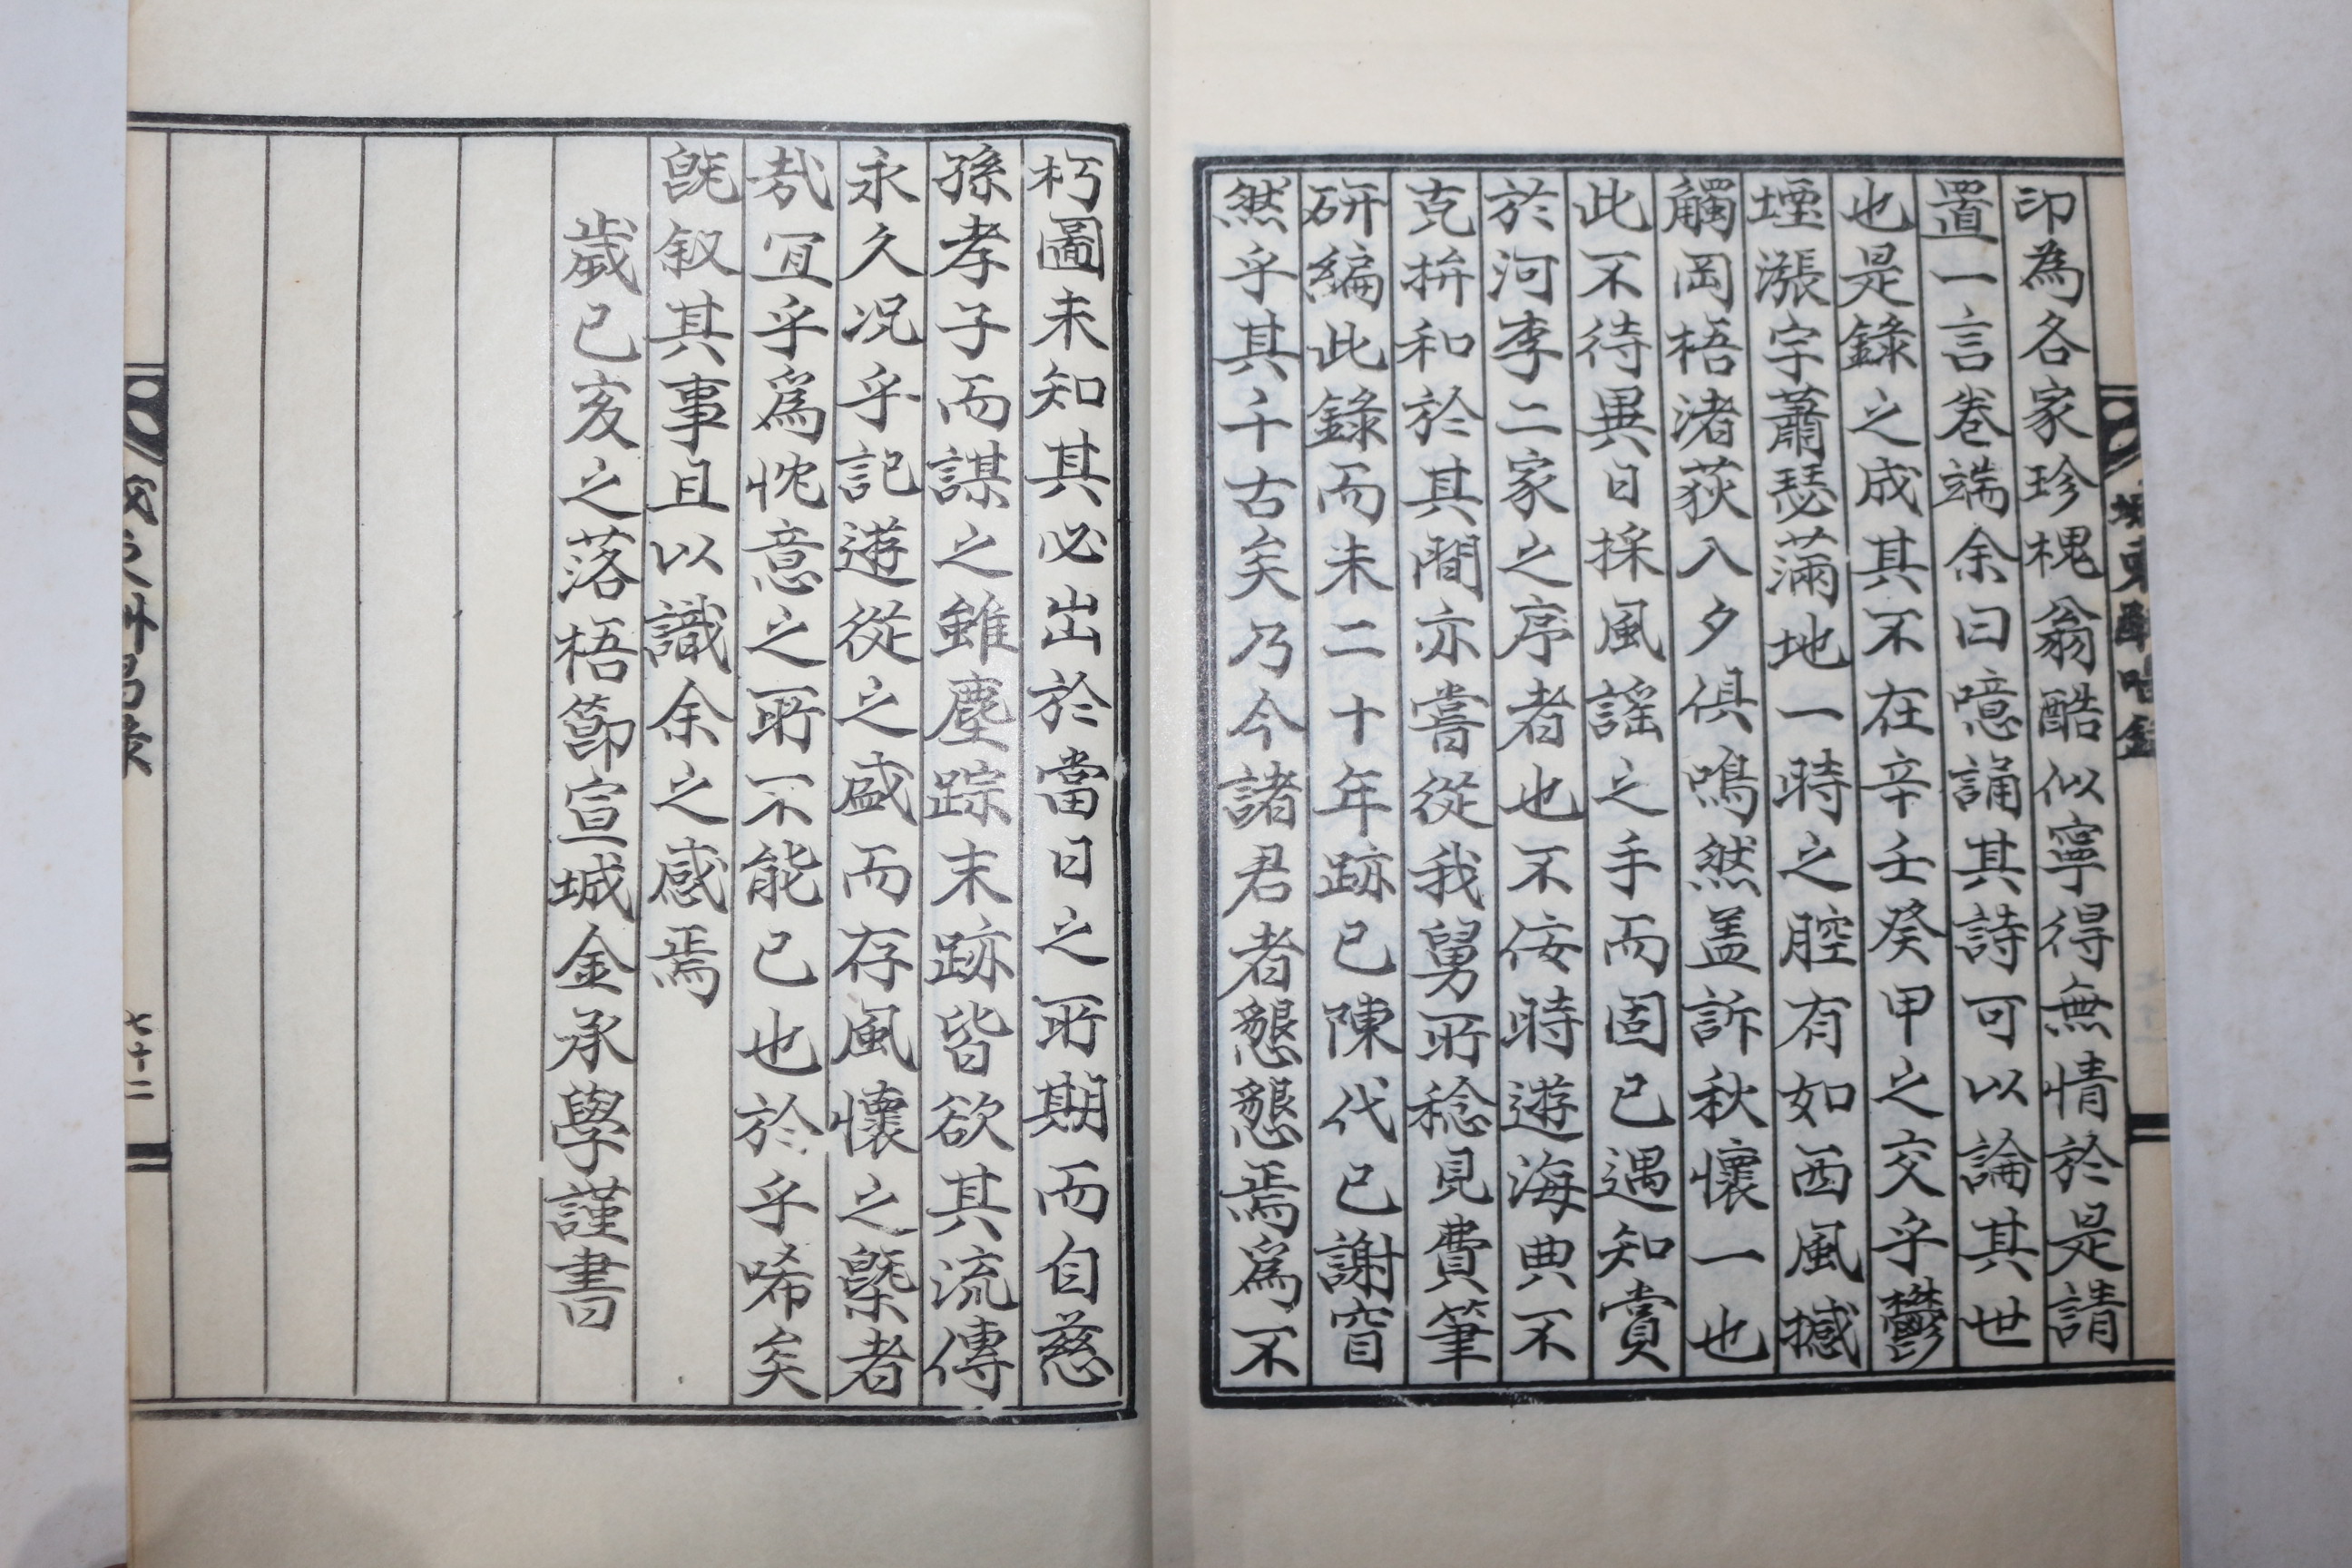 印為各家珍槐翁酷似寧得無情於是請
置一言卷端余曰噫誦其詩可以論其世
也是錄之成其不在辛壬癸甲之交乎鬱
堙漲宇蕭瑟滿地一時之腔有如西風撼
觸岡梧渚荻入夕俱鳴然盖訴秋懷一也
此不待異日採風謠之手而固已遇知賞
於河李二家之序者也不侫時遊海典不
克拚和於其間亦嘗從我舅所稔見費筆
研編此錄而未二十年跡已陳代已謝窅
然乎其千古矣乃今諸君者懇懇焉爲不
朽圖未知其必出於當日之所期而自慈
孫孝子而謀之雖塵踪末跡皆欲其流傳
永久况乎記遊從之盛而存風懷之槩者
哉冝乎爲忱意之所不能已也於乎唏矣
旣叙其事且以識余之感焉
歲己亥之落梧節宣城金承學謹書
七十二